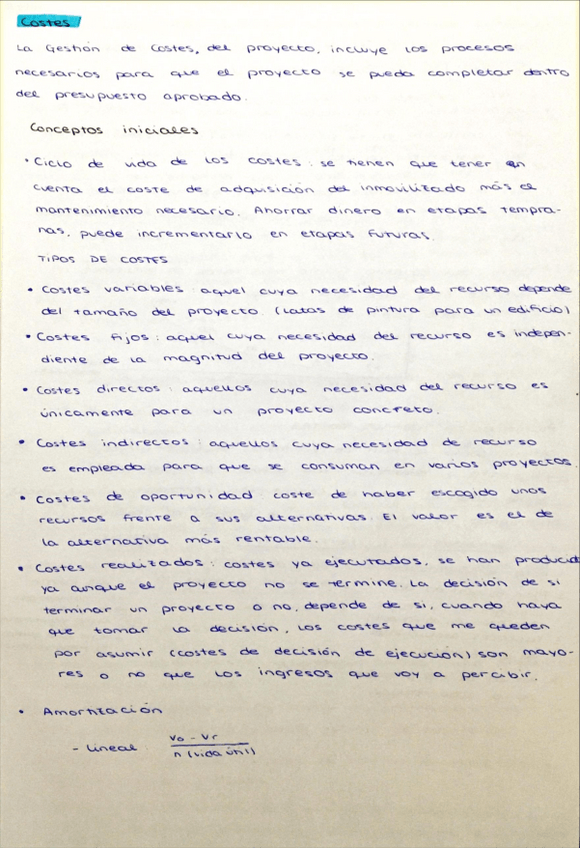 Costes
La Gestión de Costes, del proyecto, incluye los procesos
necesarios para que el proyecto se pueda completar dentro
del presupuesto aprobado.
Conceptos iniciales
• Ciclo de vida de los costes: se tienen que tener en
cuenta el coste de adquisición del inmovilizado más el
mantenimiento necesario. Ahorrar dinero en etapas tempra-
nas, puede incrementarlo en etapas futuras.
TIPOS DE COSTES
• Costes variables: aquel cuya necesidad del recurso depende
del tamaño del proyecto. (latas de pintura para un edificio)
• Costes fijos: aquel cuya necesidad del recurso es indepen-
diente de la magnitud del proyecto.
• Costes directos: aquellos cuya necesidad del recurso es
únicamente para un proyecto concreto.
• Costes indirectos: aquellos cuya necesidad de recurso
es empleada para que se consuman en varios proyectos.
• Costes de oportunidad: coste de haber escogido unos
recursos frente a sus alternativas. El valor es el de
la alternativa más rentable.
• Costes realizados: costes ya ejecutados, se han producid
ya aunque el proyecto no se termine. La decisión de si
terminar un proyecto o no, depende de si, cuando haya
que tomar la decisión, los costes que me queden
por asumir (costes de decisión de ejecución) son mayo-
res o no que los ingresos que voy a percibir.
• Amortización
- Lineal
Vo - Vr
n (vida útil)